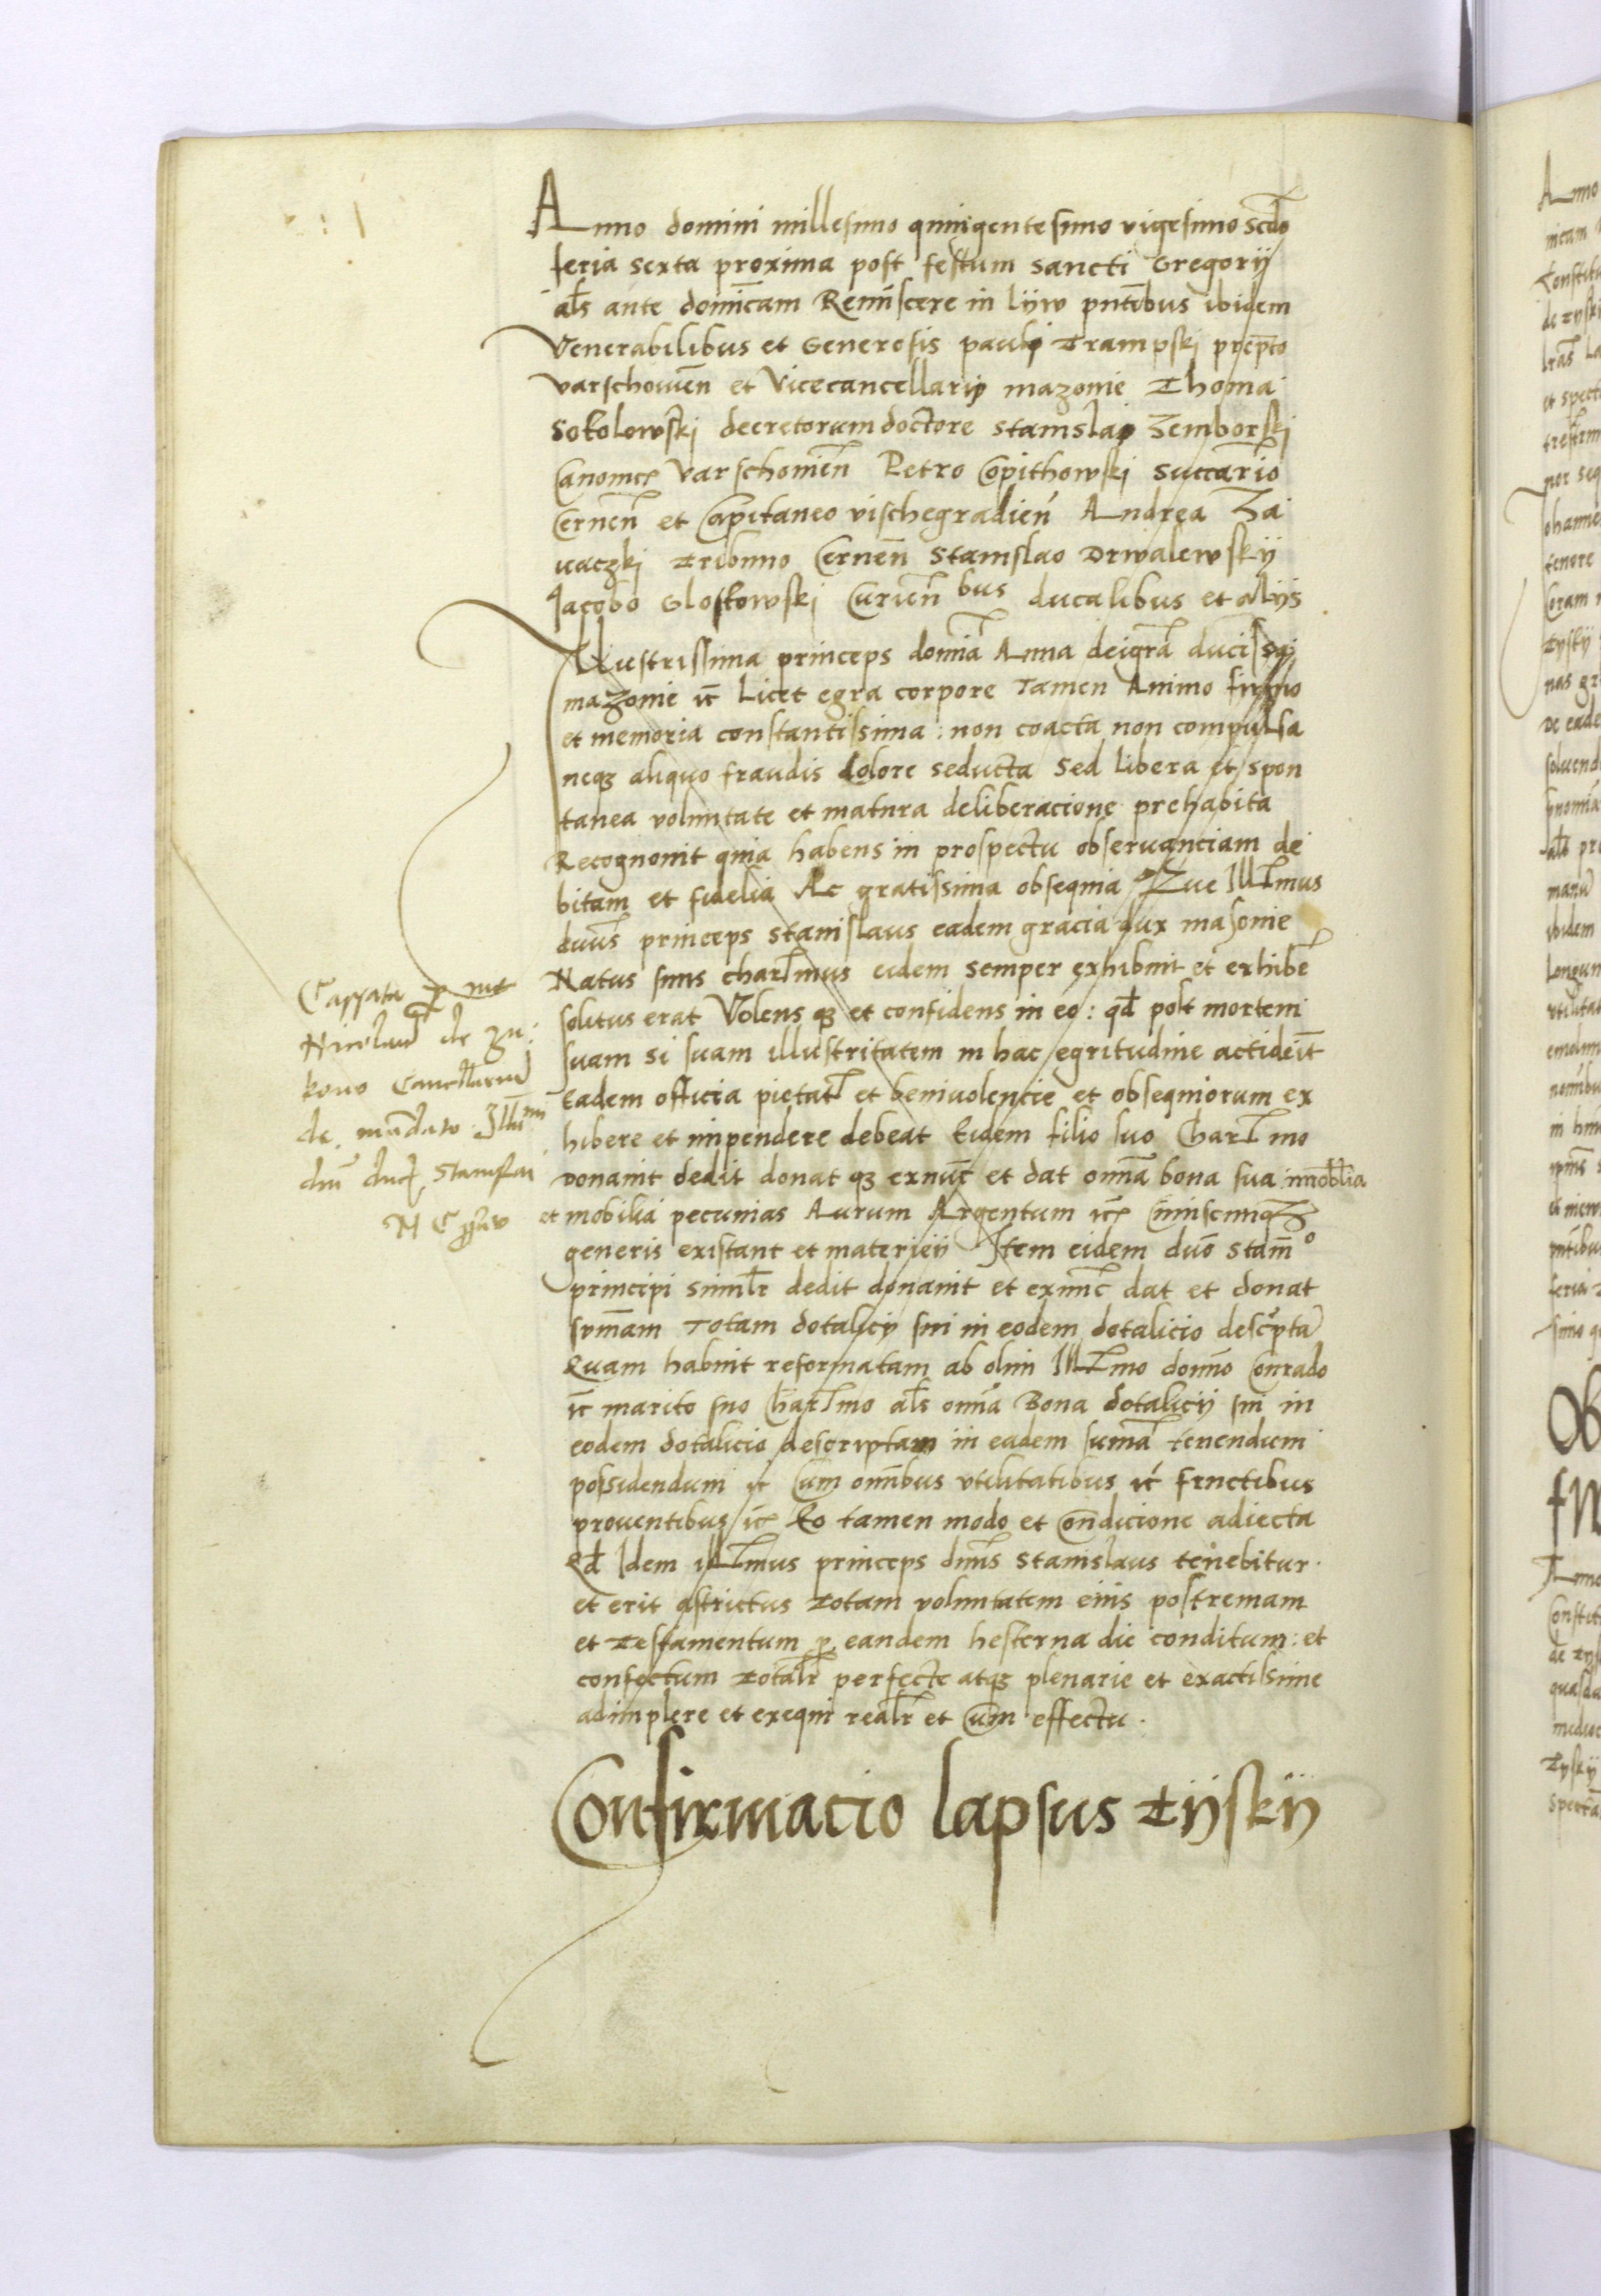 Anno domini millesimo quingentesimo vigesimo scdo
feria sexta proxima post festum sancti Gregorij
als ante dominicam Reminiscere in lijw pntibus ibidem
Venerabilibus et Generosis paulo Trampski prepto
varschouien et Vicecancellario mazonie Thoma
Sokolowski decretorum doctore Stanislao Zemborski
Canonicis varschouien Petro Copithowski Succario
Cernen et Capitaneo vischegradien Andrea Za
uaczki Tribuno Cernen Stanislao Drwalewskij
Jacobo Gloskowski Curien bus ducalibus et alijs
Illustrissima princeps domina Anna dei gra ducissa
mazonie ic Licet egra corpore Tamen Animo firmo
et memoria constantissima : non coacta non compulsa
neqz aliquo fraudis dolore seducta Sed Libera et spon
tanea voluntate et matura deliberacione prehabita
Recognouit quia habens in prospectu obseruanciam de
bitam et fidelia Ac gratissima obsequia que Illmus
duns princeps Stanislaus eadem gracia dux masonie
Natus suus charmus eidem semper exhibuit et exhibe
solitus erat Volens qz et confidens in eo : qd post mortem
suam si suam illustritatem in hac egritudine accideit
Eadem officia pietat et beniuolencie et obsequiorum ex
hibere et impendere debeat Eidem filio suo Charmo
donauit dedit donat qz exnunc et dat omnia bona sua immobilia
et mobilia pecunias Aurum Argentum ic Cuiuscunqz
generis existant et materieij Item eidem duo Stano
principi similr dedit donauit et exnunc dat et donat
summam Totam dotalicij sui in eodem dotalicio descripta
Quam habuit reformatam ab olim Illmo domno Conrado
ic marito suo Charmo als omnia Bona dotalicij sui in
eodem dotalicio descriptam in eadem summa tenendum
possidendum ic Cum omnibus vtilitatibus ic fructibus
prouentibus ic Eo tamen modo et condicione adiecta
Qd Idem illmus princeps duns Stanislaus tenebitur .
et erit astrictus Totam voluntatem eius postremam
et Testamentum p eandem hesterna die conditum : et
confectum Totalr perfecte atqz plenarie et exactissime
adimplere et exequi realr et cum effectu .
Confirmacio lapsus Tijskij
Cassata p me
Nicolaum de Zu
kowo Cancellarium
de mandato Illmi
dni ducis Stanislai
M C ppria